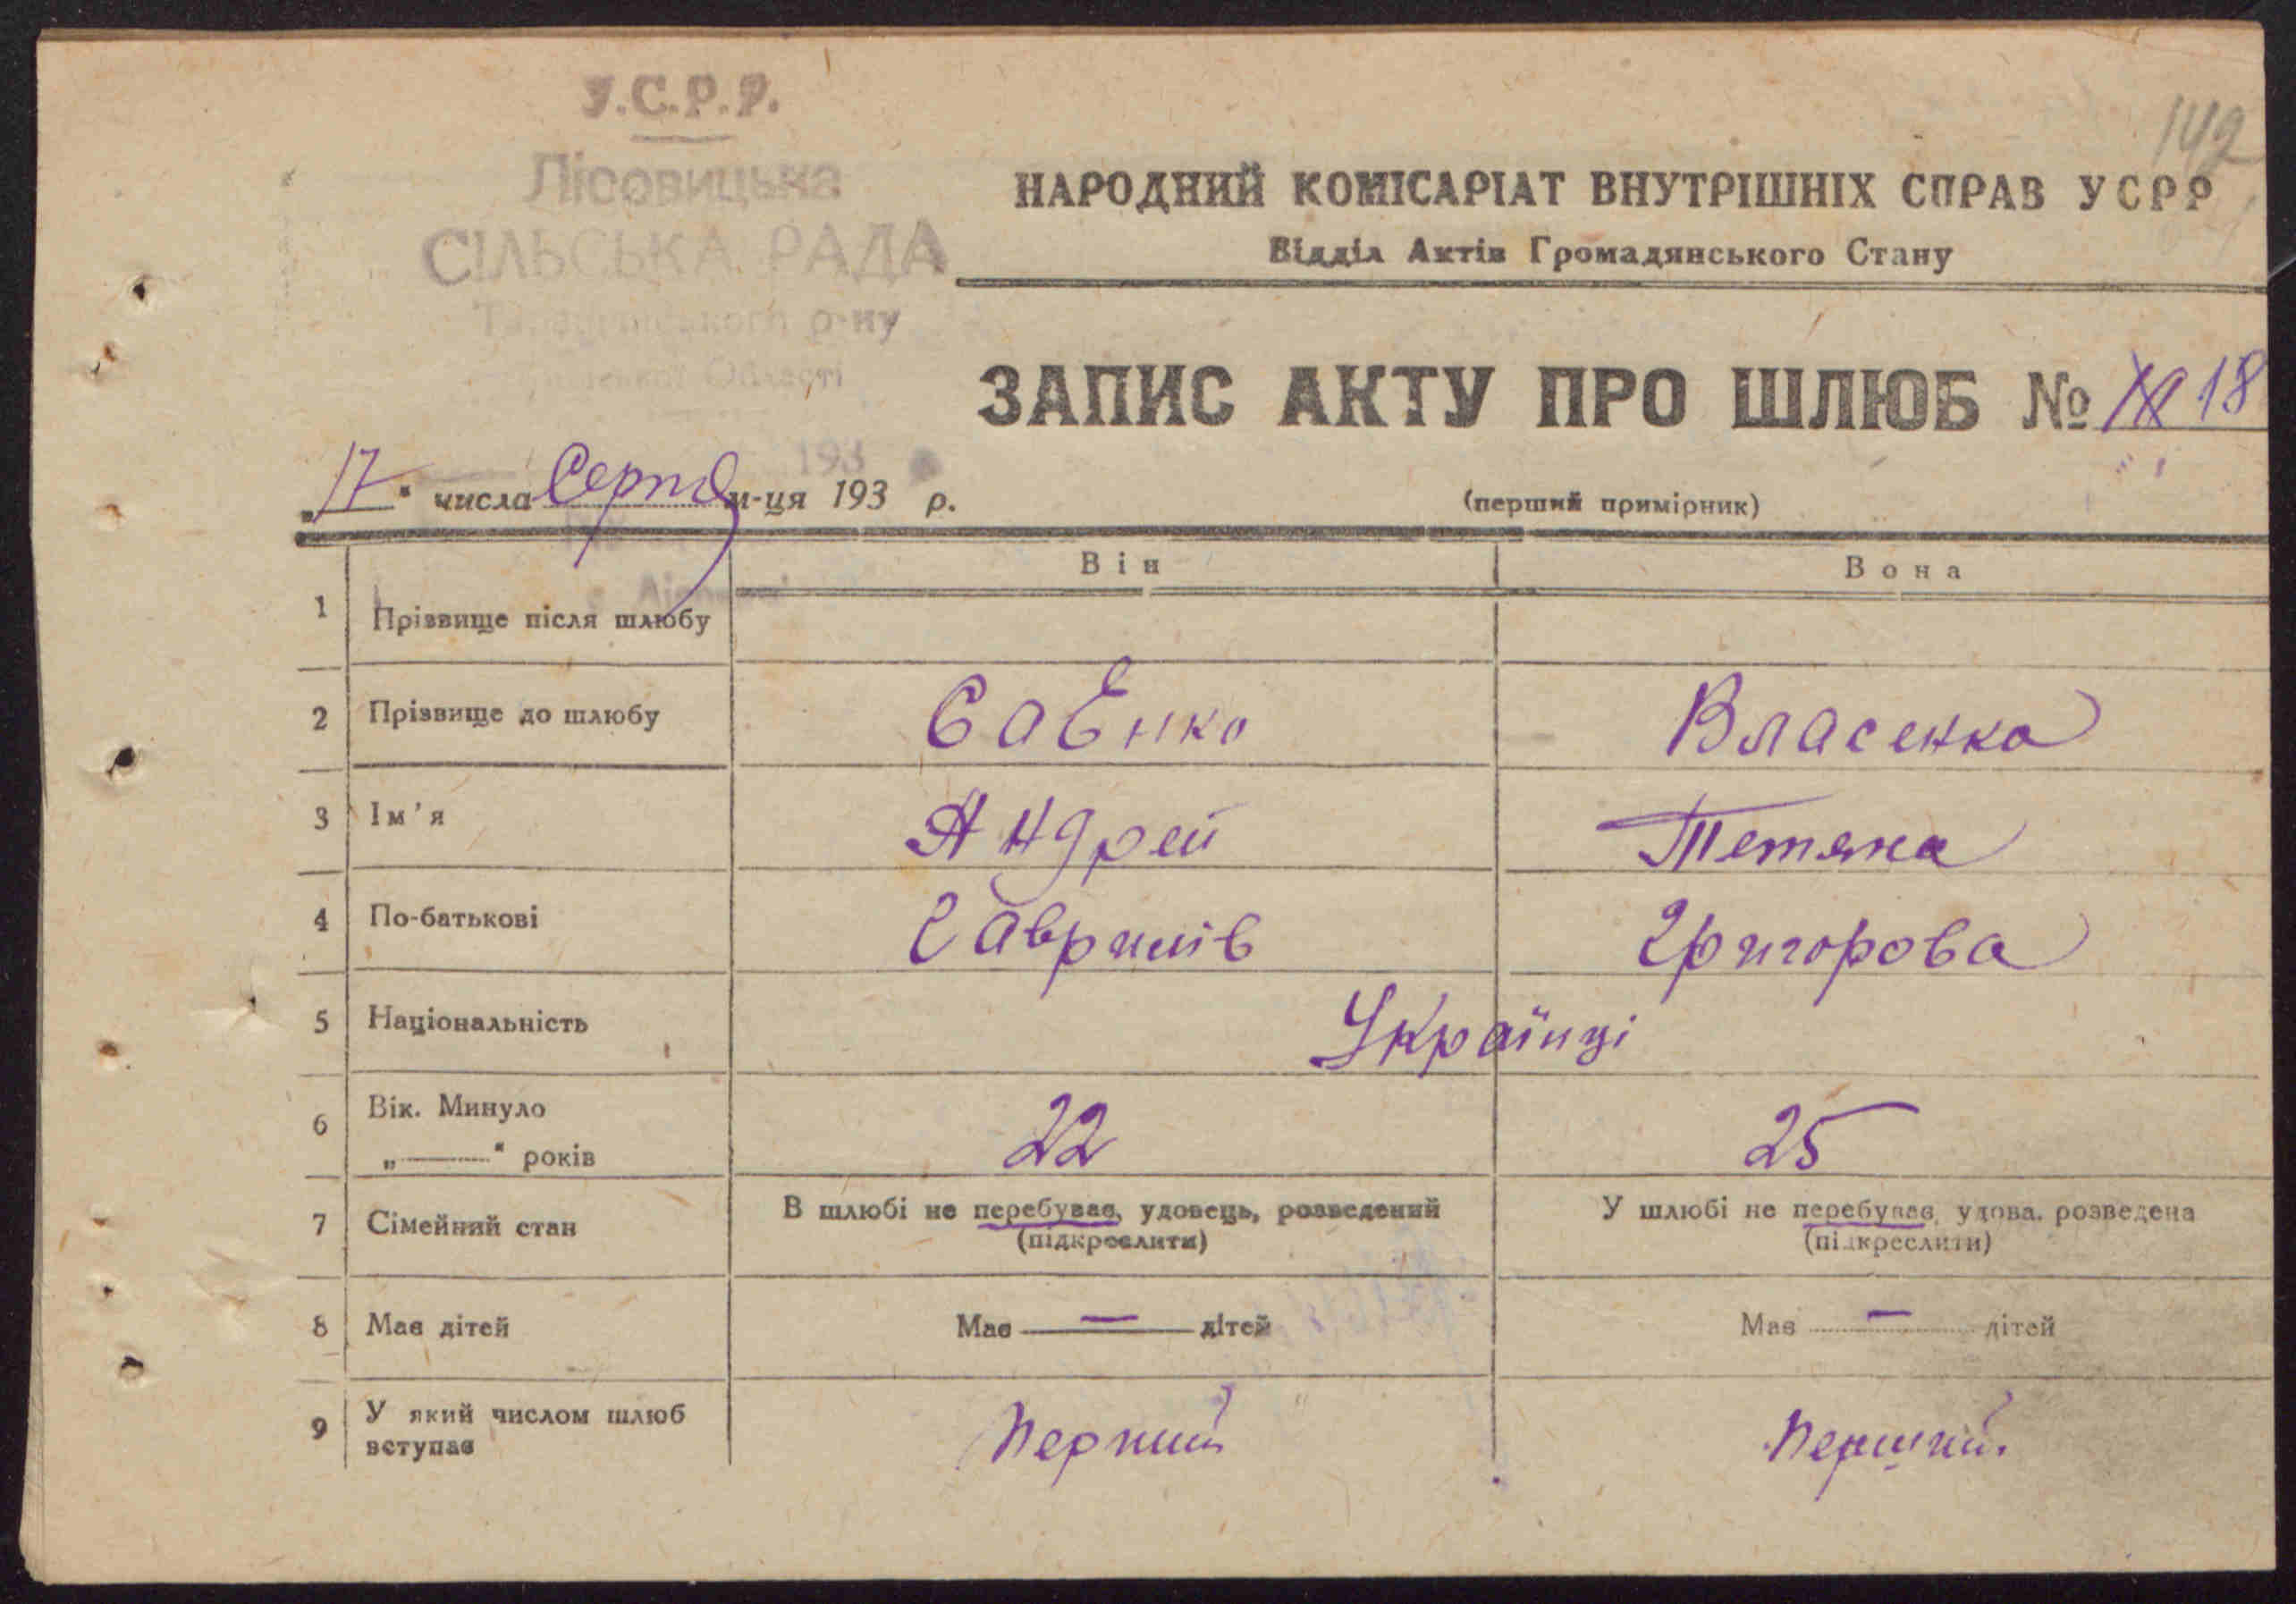 У.С.Р.Р.
Лісовицька
СІЛЬСЬКА РАДА
р-ну
Області
193
142
НАРОДНИЙ КОМІСАРІАТ ВНУТРІШНІХ СПРАВ УСРР
Відділ Актів Громадянського Стану
ЗАПИС АКТУ ПРО ШЛЮБ № 18
„17“ числа Серпня м-ця 193 р.
(перший примірник)
Він Вона
1 Прізвище після шлюбу
2 Прізвище до шлюбу Саєнко Власенко
3 Ім'я Андрей Тетяна
4 По-батькові Гаврилів Григорова
5 Національність Українці
6 Вік. Минуло
„ “ років 22 25
7 Сімейний стан В шлюбі не перебував, удовець, розведений У шлюбі не перебуває, удова. розведена
(підкреслити) (підкреслити)
8 Має дітей Має — дітей Має — дітей
9 У який числом шлюб
вступає Перший Перший